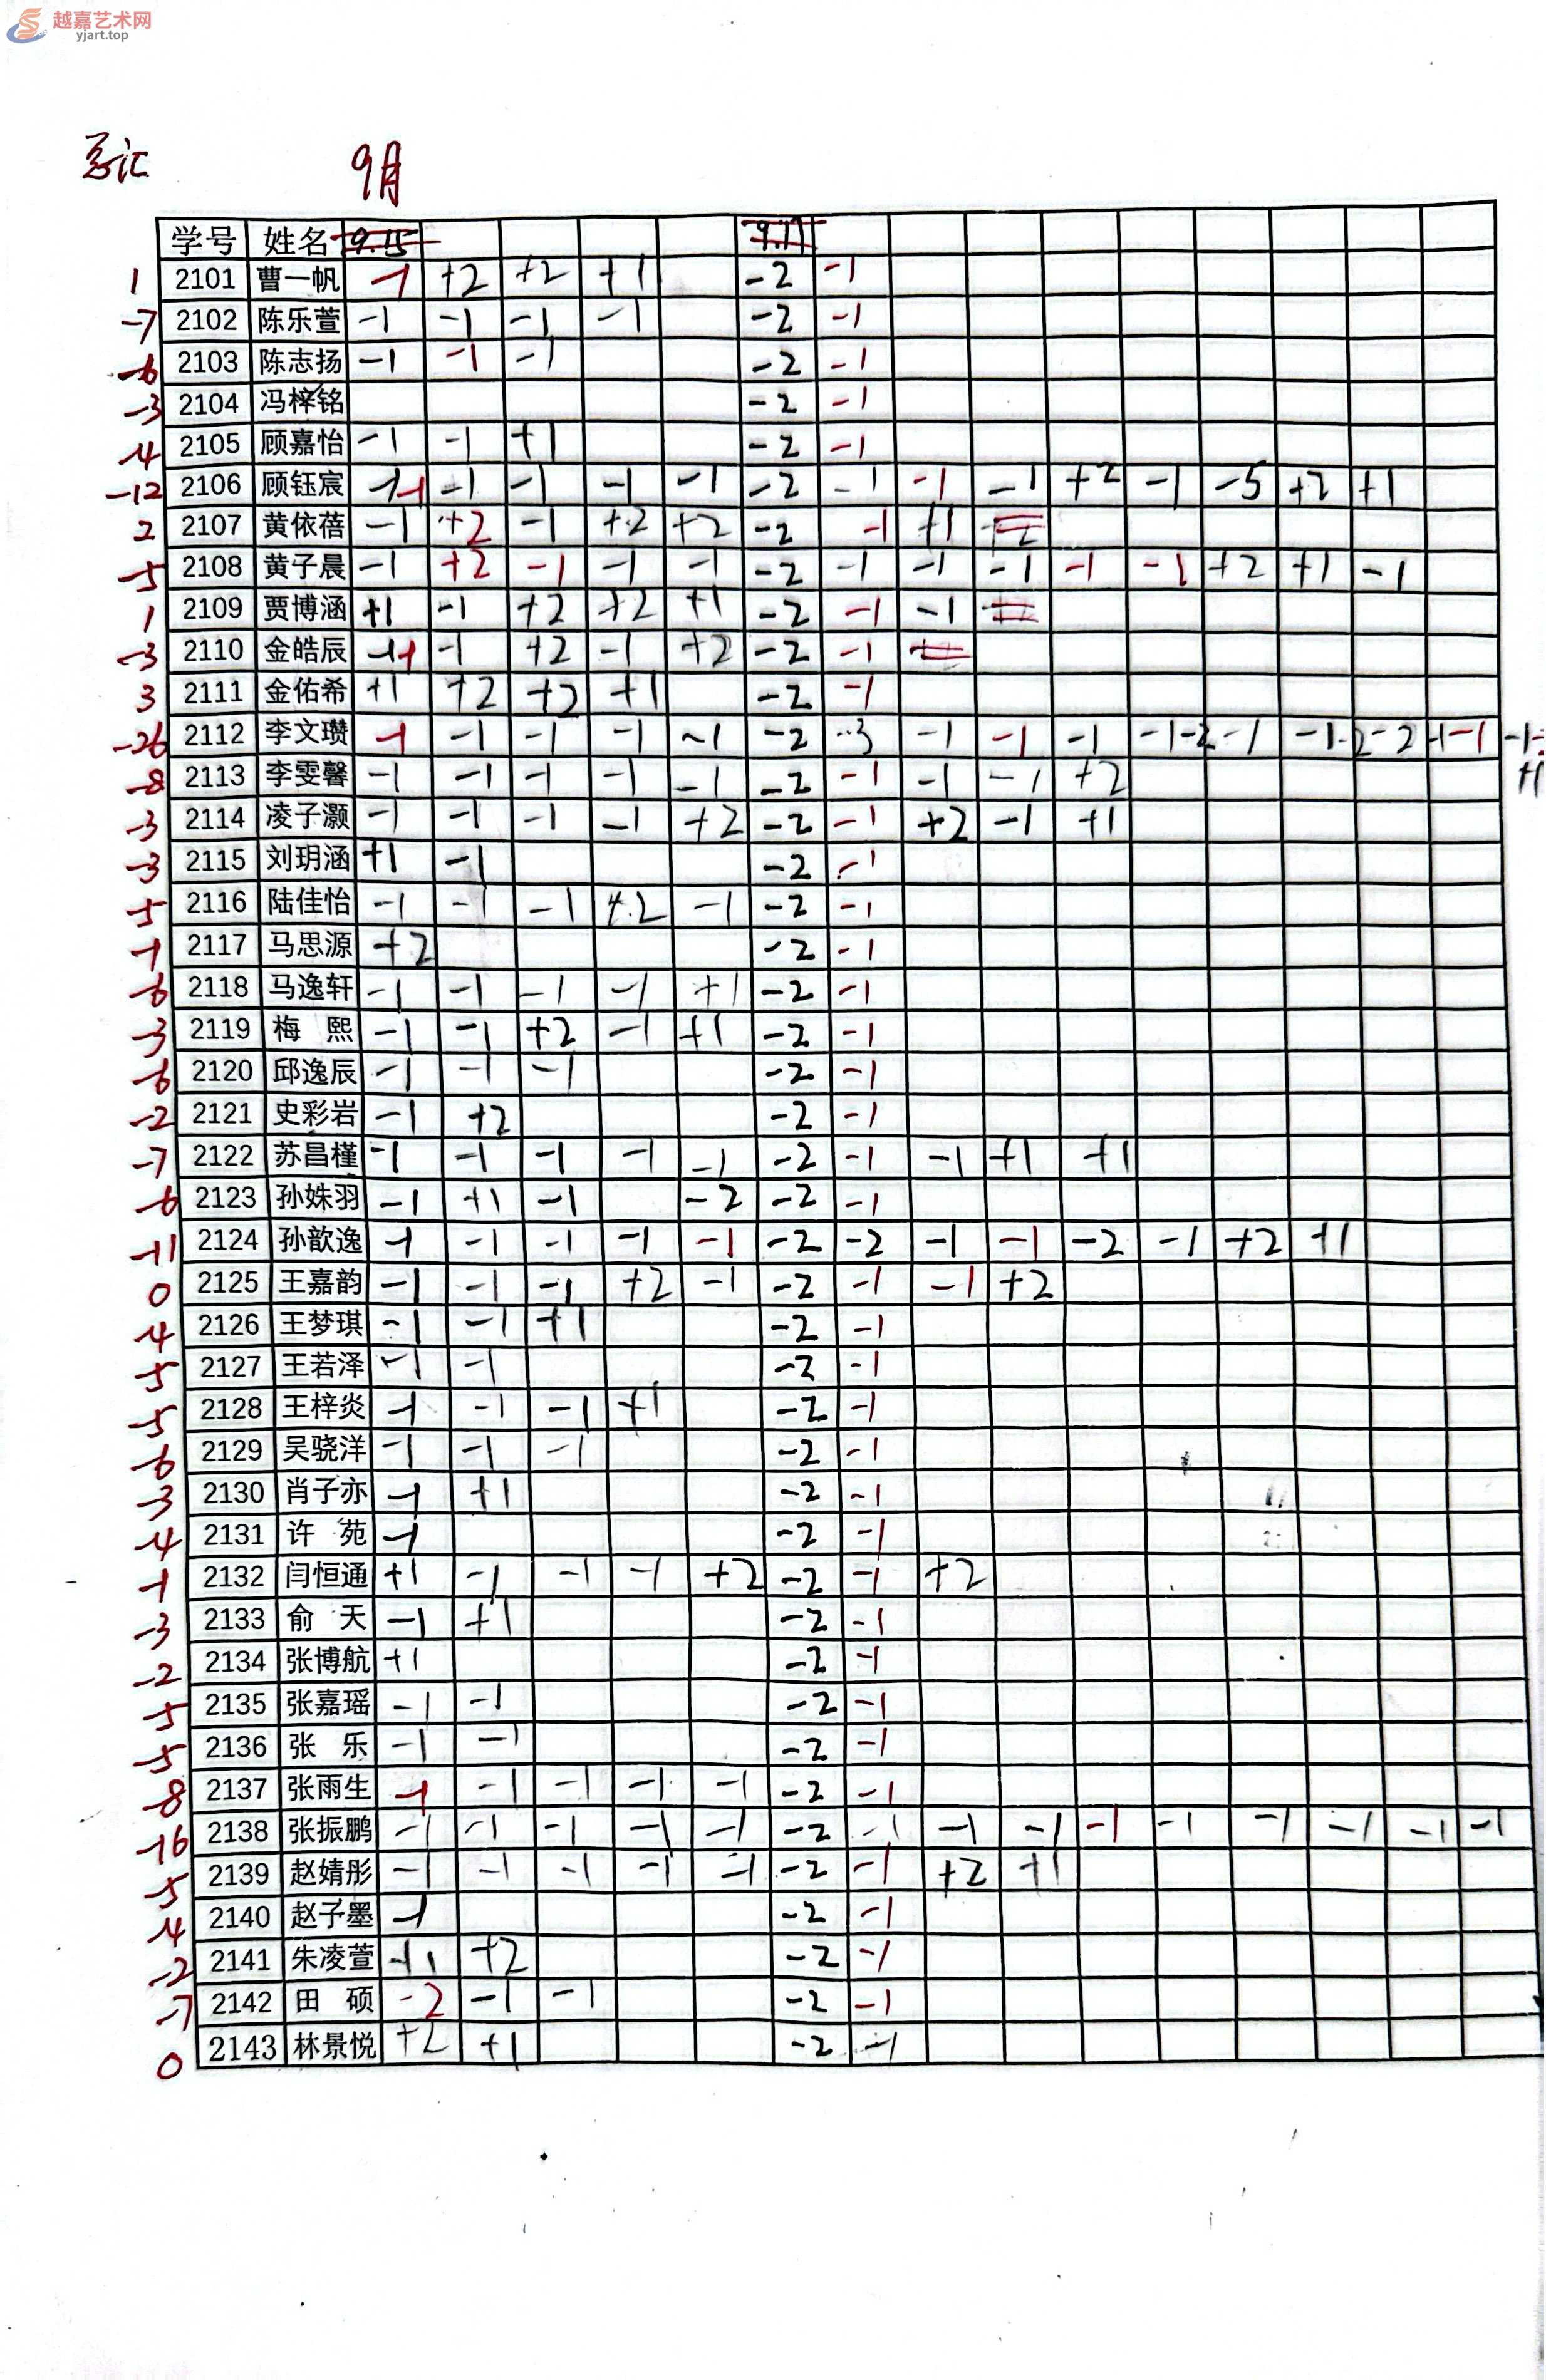 越嘉艺术网
yjart.top
总汇 9月
学号 姓名 9.15 9.17
1 2101 曹一帆 -1 +2 +2 +1 -2 -1
-7 2102 陈乐萱 -1 -1 -1 -1 -2 -1
-6 2103 陈志扬 -1 -1 -1 -2 -1
-3 2104 冯梓铭 -2 -1
-4 2105 顾嘉怡 -1 -1 +1 -2 -1
-12 2106 顾钰宸 -1 -1 -1 -1 -1 -1 -2 -1 -1 -1 +2 -1 -5 +2 +1
2 2107 黄依蓓 -1 +2 -1 +2 +2 -2 -1 +1
-5 2108 黄子晨 -1 +2 -1 -1 -1 -2 -1 -1 -1 -1 -1 +2 +1 -1
1 2109 贾博涵 +1 -1 +2 +2 +1 -2 -1 -1
-3 2110 金皓辰 -1 -1 -1 +2 -1 +2 -2 -1
3 2111 金佑希 +1 +2 +2 +1 -2 -1
-26 2112 李文瓒 -1 -1 -1 -1 -1 -2 -3 -1 -1 -1 -1 -2 -1 -1 -2 -2 -1 -1 -1
+1
-8 2113 李雯馨 -1 -1 -1 -1 -1 -2 -1 -1 -1 +2
-3 2114 凌子灏 -1 -1 -1 -1 +2 -2 -1 +2 -1 +1
-3 2115 刘玥涵 +1 -1 -2 -1
-5 2116 陆佳怡 -1 -1 -1 +2 -1 -2 -1
-1 2117 马思源 +2 -2 -1
-6 2118 马逸轩 -1 -1 -1 -1 +1 -2 -1
-3 2119 梅 熙 -1 -1 +2 -1 +1 -2 -1
-6 2120 邱逸辰 -1 -1 -1 -2 -1
-2 2121 史彩岩 -1 +2 -2 -1
-7 2122 苏昌槿 -1 -1 -1 -1 -1 -2 -1 -1 +1 +1
-6 2123 孙姝羽 -1 +1 -1 -2 -2 -1
-11 2124 孙歆逸 -1 -1 -1 -1 -1 -2 -2 -1 -1 -2 -1 +2 +1
0 2125 王嘉韵 -1 -1 -1 +2 -1 -2 -1 -1 +2
-4 2126 王梦琪 -1 -1 +1 -2 -1
-5 2127 王若泽 -1 -1 -2 -1
-5 2128 王梓炎 -1 -1 -1 +1 -2 -1
-6 2129 吴骁洋 -1 -1 -1 -2 -1
-3 2130 肖子亦 -1 +1 -2 -1
-4 2131 许 苑 -1 -2 -1
-1 2132 闫恒通 +1 -1 -1 -1 +2 -2 -1 +2
-3 2133 俞 天 -1 +1 -2 -1
-2 2134 张博航 +1 -2 -1
-5 2135 张嘉瑶 -1 -1 -2 -1
-5 2136 张 乐 -1 -1 -2 -1
-8 2137 张雨生 -1 -1 -1 -1 -1 -2 -1
-16 2138 张振鹏 -1 -1 -1 -1 -1 -2 -1 -1 -1 -1 -1 -1 -1 -1 -1
-5 2139 赵婧彤 -1 -1 -1 -1 -1 -2 -1 +2 +1
-4 2140 赵子墨 -1 -2 -1
-2 2141 朱凌萱 +1 +2 -2 -1
-7 2142 田 硕 -2 -1 -1 -2 -1
0 2143 林景悦 +2 +1 -2 -1